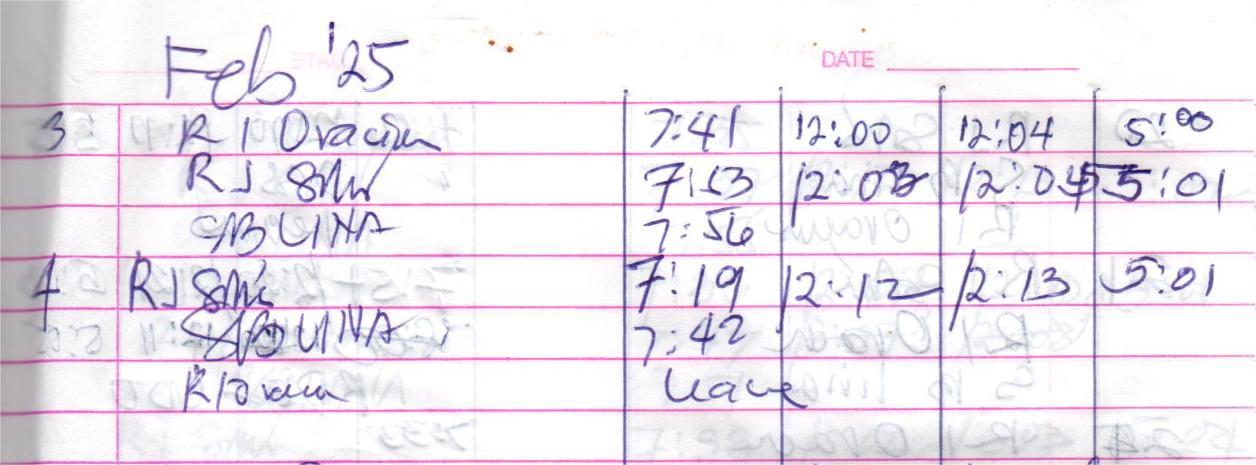 Feb '25
DATE
3 R I Oracion 7:41 12:00 12:04 5:00
RJ 7:53 12:03 12:04 5:01
SB LINA 7:56
4 RJ 7:19 12:12 12:13 5:01
SB LINA 7:42
R I Leave